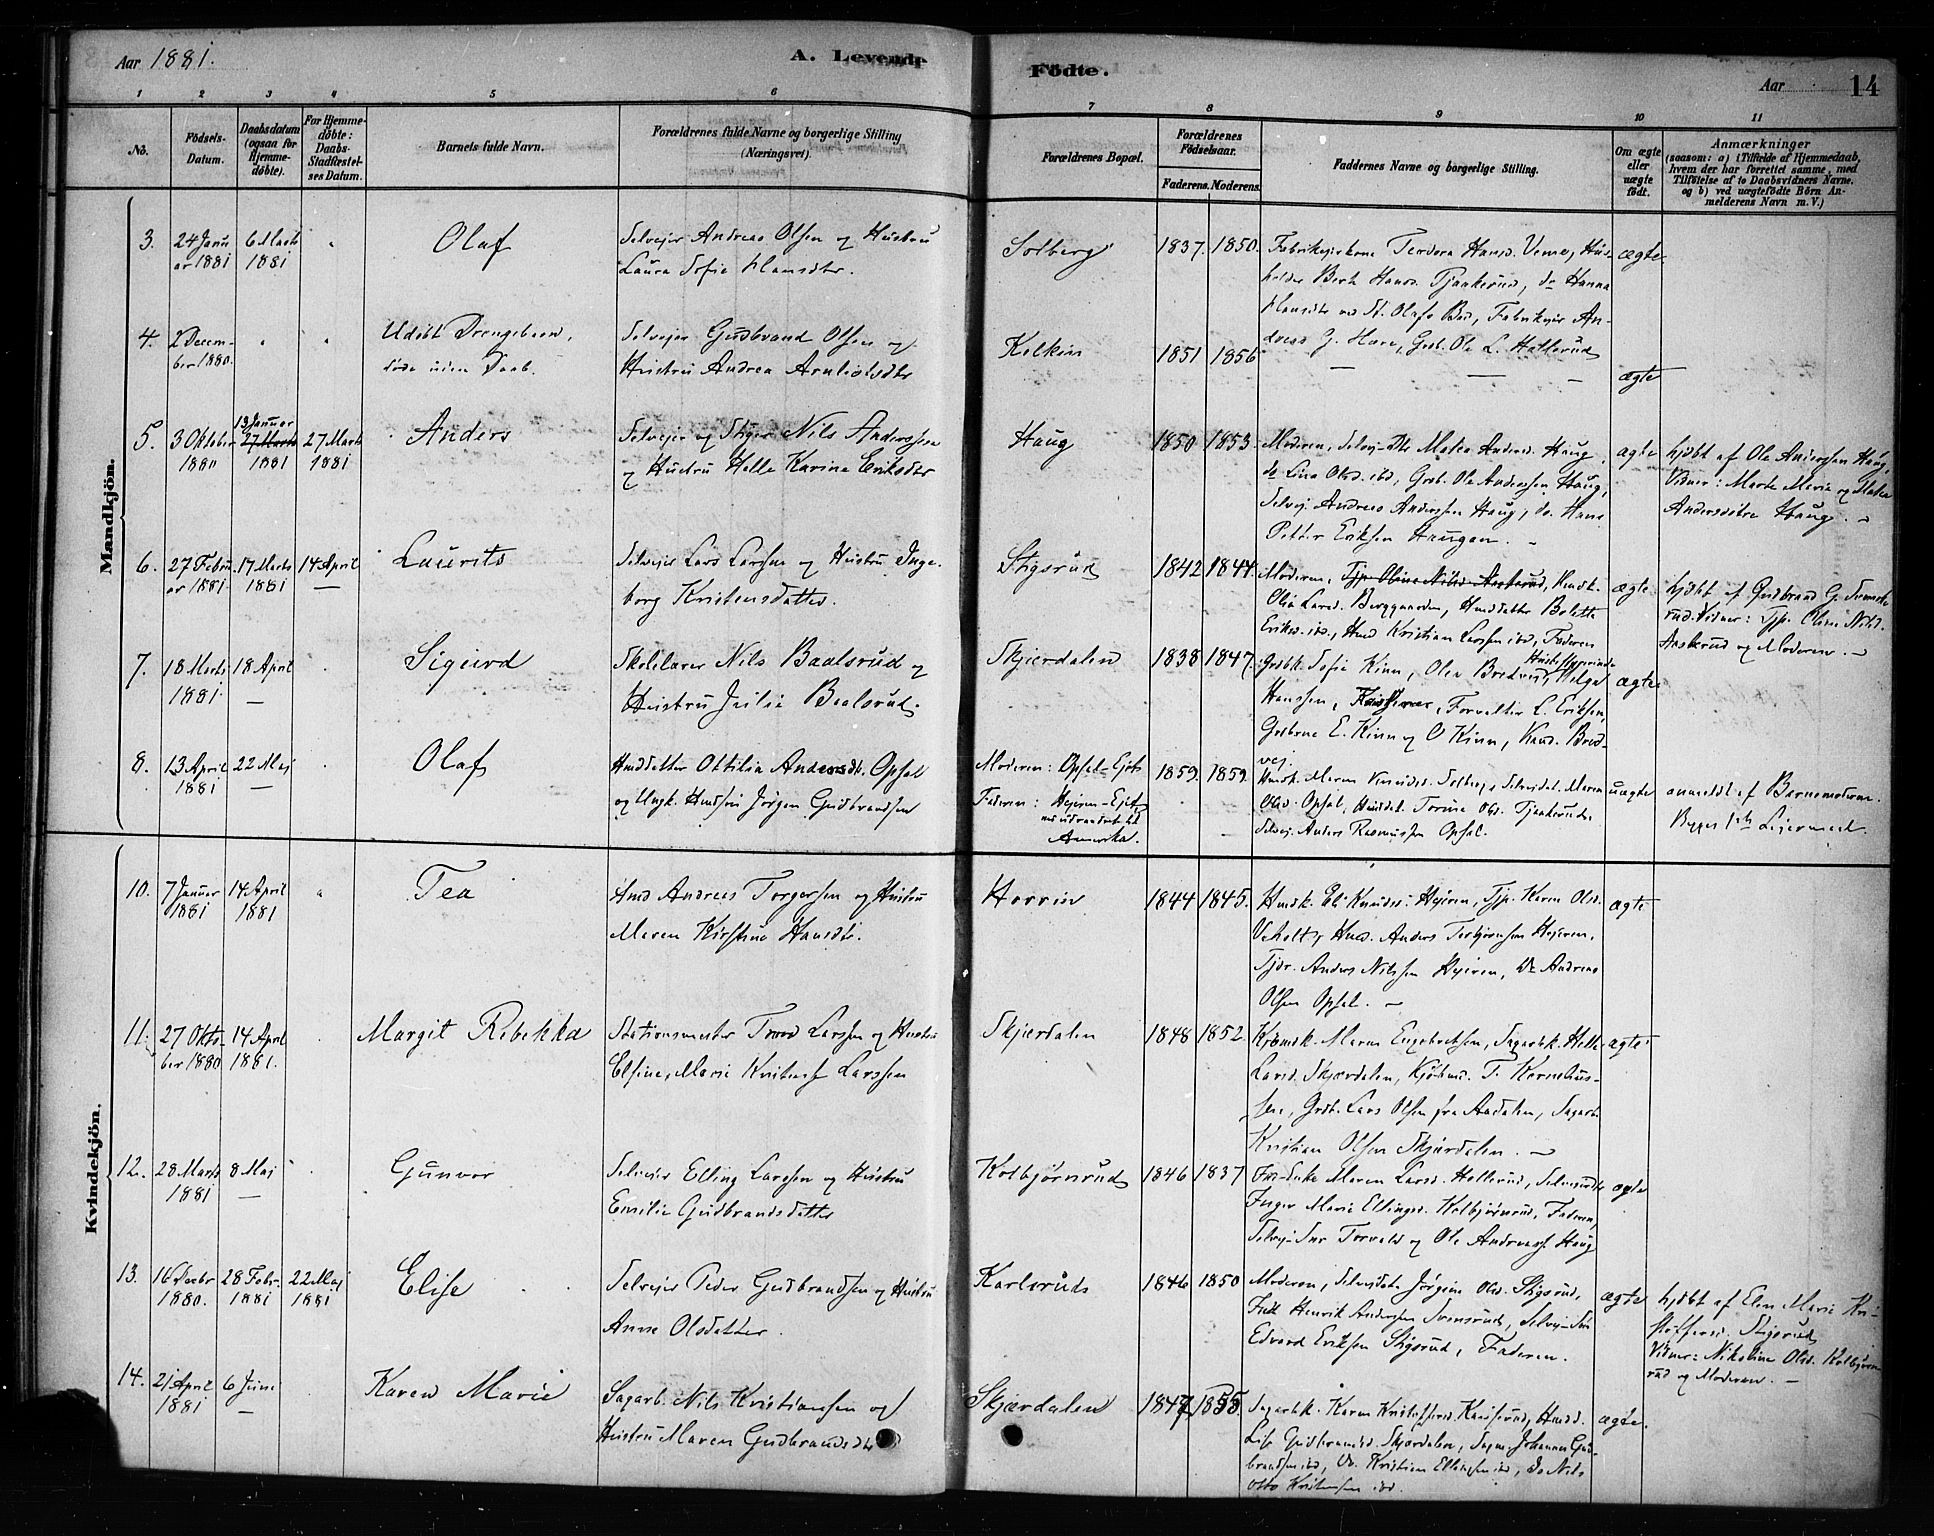 Aar 1881.
A. Levende
Födte.
Aar
14
1 2 3 4 5 6 7 8 9 10 11
No.
Födsels-
Datum.
Daabsdatum
(ogsaa for
Hjemme-
döbte).
For Hjemme-
döbte:
Daabs-
Stadfæstel-
ses Datum.
Barnets fulde Navn.
Forældrenes fulde Navne og borgerlige Stilling
(Næringsvei).
Forældrenes Bopæl.
Forældrenes
Födselsaar.
Faderens. Moderens.
Faddernes Navne og borgerlige Stilling.
Om ægte
eller
uægte
födt.
Anmærkninger
(saasom: a) i Tilfælde af Hjemmedaab,
hvem der har forrettet samme, med
Tilföielse af to Daabsvidners Navne,
og b) ved uægtefödte Börn An-
melderens Navn m. V.)
Mandkjön.
3.
24 Janu
ar 1881
6 Marts
1881
Olaf
Selveier Andreas Olsen og Hustru
Laura Sofie Hansdtr.
Solberg
1837. 1850.
Fabrikejerkone Teodora Hansd. Veme, Hus-
holder Berte Hansd. Tjankerud, do Hanna
Hansdtr ved St. Olafs Bad, Fabrikejer An-
dreas G. Hære, Grdb. Ole L. Hallerud
ægte
4.
2 Decem-
ber 1880.
Udöbt Drengebarn,
döde uden Daab.
Selvejer Gudbrand Olsen og
Hustru Andrea Arnliotsdtr
Kelkin
1851 1856
ægte
5.
3 Oktober
1880
13 Januar
27 Marts
1881
27 Marts
1881
Anders
Selvejer og Stiger Nils Anderssen
og Hustru Helle Karine Eriksdtr
Haug
1850 1853.
Moderen, Selvej-Dtr Matea Andersd. Haug,
do Lina Olsd. ibd, Grdb. Ole Anderssen Haug,
Selvej. Andreas Anderssen Haug, do. Hans
Petter Eriksen Haugen.
ægte
hjdbt af Ole Anderssen Haug,
Vidner: Marte Marie og Matea
Andersdötre Haug.
6.
27 Febru
ar 1881.
17 Marts
1881
14 April
Laurits
Selvejer Lars Larsen og Hustru Inge-
borg Kristensdatter.
Stigsrud
1842 1844
Moderen, Tjp. Oline Nilsd. Aaskerud, Hmdk.
Olia Larsd. Berggaarden, Hmddatter Bolette
Eriksd. ibd., Hmd Kristian Larssen ibd, Faderen
ægte
hjdbt af Gudbrand G. Svenske
rud. Vidner: Tjp. Oline Nilsd.
Aaskerud og Moderen.
7.
18 Marts
1881.
18 April
Sigurd
Skolelærer Nils Baalsrud og
Hustru Julie Baalsrud.
Skjerdalen
1838 1847.
Grdbk. Sofie Kinn, Olea Bredvej, Helga
Hanssen, Forvalter L. Eriksen,
Grdbrne E. Kinn og O Kinn, Kand. Bred-
vej.
ægte
8.
13 April
1881
22 Maj
Olaf
Hmddatter Ottilia Andersdtr. Opsal
og Ungk. Hmdssn Jörgen Gudbrandsen
Moderen: Opsal-Ejet
Faderen: Hejeren-Ejet
nu udvandret til
Amerika.
1859. 1859.
Hmdk. Maren Knudsd. Solberg, Selvejdat. Maren
Olsd. Opsal, Hmddat. Torine Olsd. Tjankerud,
Selvej. Anders Rasmussen Opsal.
uægte
anmeldt af Barnemoderen.
Begges 1ste Leiermaal.
Kvindekjön.
10.
7 Januar
1881
14 April
1881
Tea
Hmd Andreas Torgersen og Hustru
Maren Kirstine Hansdtr.
Horrin
1844 1845.
Hmdk. Eli Knudsd. Hejeren, Tjp. Karen Olsd.
Veholt, Hmd. Anders Torbjörnsen Hejeren,
Tjdr. Anders Nilssen Hejeren, Do Andreas
Olsen Opsal.
ægte
11.
27 Okto
ber 1880
14 April
1881.
Margit Rebekka
Stationsmester Tmod Larssen og Hustru
Elsine Marie Kristensdtr Larssen
Skjærdalen
1848 1852.
Kjömdk. Maren Engebretsen, Sagarbk. Helle
Larsd. Skjærdalen, Kjöbmd. T. Kornelius-
sen, Grdb. Lars Olsen fra Aadalen, Sagarb.
Kristian Olsen Skjærdalen.
ægte
12.
28 Marts
1881
8 Maj
Gunvor
Selvejer Elling Larssen og Hustru
Emilie Gudbrandsdatter
Kolbjörnsrud
1846 1837
Enke Maren Larsd. Hellerud, Selvejerdtr
Inger Marie Ellingsd. Kolbjörnsrud, Faderen,
Selvej-Snr Torvald og Ole Andreass. Haug
ægte
13.
16 Decbr
1880.
28 Febr.
1881
22 Maj
1881
Elise
Selvejer Peder Gudbrandsen og Hustru
Anne Olsdatter.
Karlsrud
1846 1850
Moderen, Selvejdatr Jörgine Olsd. Stigsrud,
Henrik Andersen Svensrud, Selvej-Sön
Edvard Eriksen Stigsrud, Faderen.
ægte
hjdbt af Elen Marie Kri-
stoffersd. Stigsrud
Vidner: Nikoline Olsd. Kolbjörns-
rud og Moderen.
14.
21 April
1881
6 Juni
Karen Marie
Sagarb. Nils Kristiansen og
Hustru Maren Gudbrandsdtr
Skjærdalen
1847 1855.
Sagarbk. Karen Kristoffersd. Karlsrud, Hmdd.
Lise Gudbrandsd. Skjærdalen, Sagm. Johannes Gud-
brandsen ibd, Do. Kristian Ellingsen ibd, do Nils
Otto Kristensen ibd.
ægte.